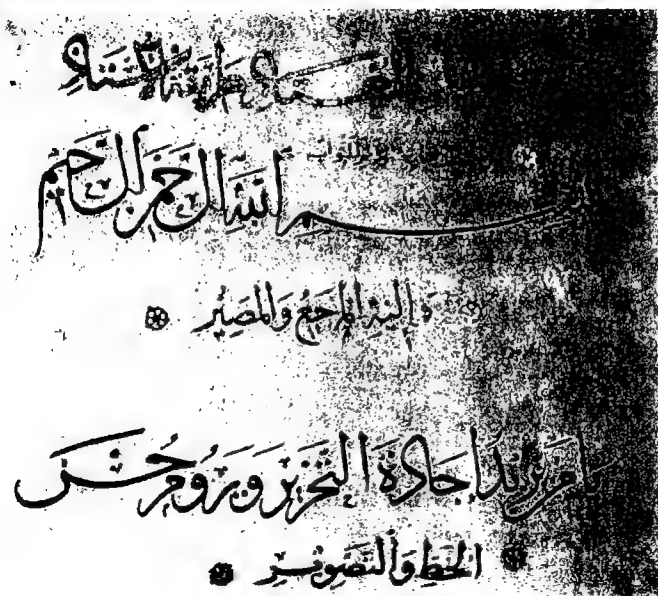 طريقة الأستاذ
بسم الله الرحمن الرحيم
وَإِلَيْهِ الْمَرْجَعُ وَالْمَصِيْرُ
يَا مَنْ يُرِيْدُ إِجَادَةَ التَّحْرِيْرِ وَيَرُوْمُ حُسْنَ
الْخَطِّ وَالتَّصْوِيْرِ